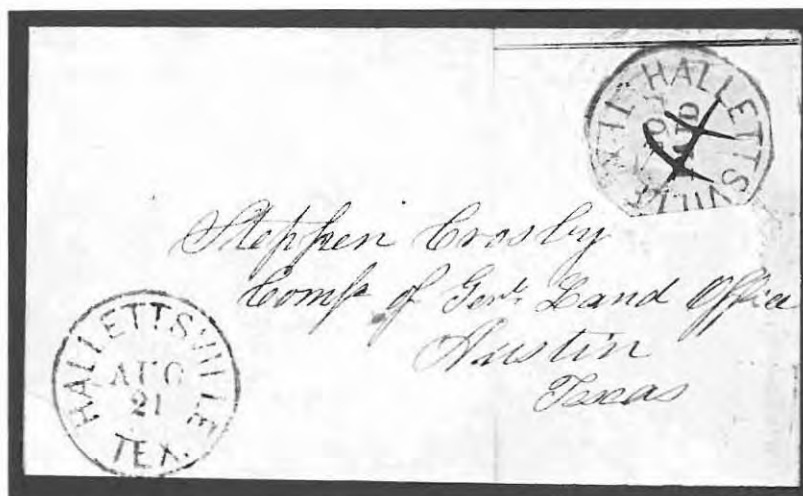 HALLETTSVILLE TEX.
Stephen Crosby
Comr of Genl Land Office
Austin
Texas
HALLETTSVILLE
AUG
21
TEX.